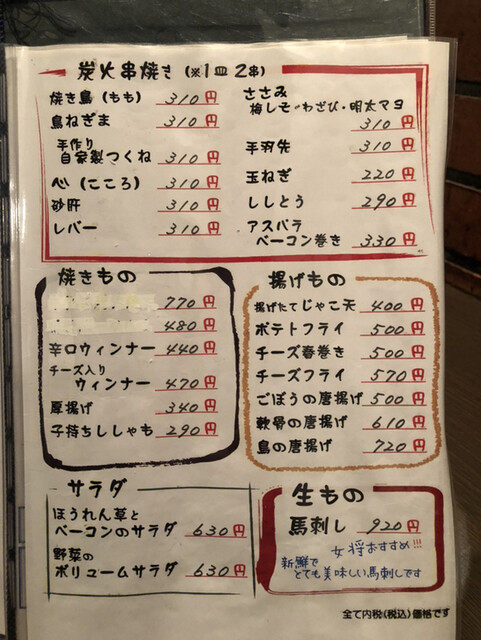 炭火串焼き(※1皿2串)
焼き鳥(もも) 310円
鳥ねぎま 310円
手作り
自家製つくね 310円
心(こころ) 310円
砂肝 310円
レバー 310円
ささみ
梅しそ・わさび・明太マヨ
310円
手羽先 310円
玉ねぎ 220円
ししとう 290円
アスパラ
ベーコン巻き 330円
焼きもの
770円
480円
辛口ウィンナー 440円
チーズ入り
ウィンナー 470円
厚揚げ 340円
子持ちししゃも 290円
揚げもの
揚げたてじゃこ天 400円
ポテトフライ 500円
チーズ春巻き 500円
チーズフライ 570円
ごぼうの唐揚げ 500円
軟骨の唐揚げ 610円
鳥の唐揚げ 720円
サラダ
ほうれん草と
ベーコンのサラダ 630円
野菜の
ボリュームサラダ 630円
生もの
馬刺し 920円
女将おすすめ!!!
新鮮で
とても美味しい馬刺しです
全て内税(税込)価格です